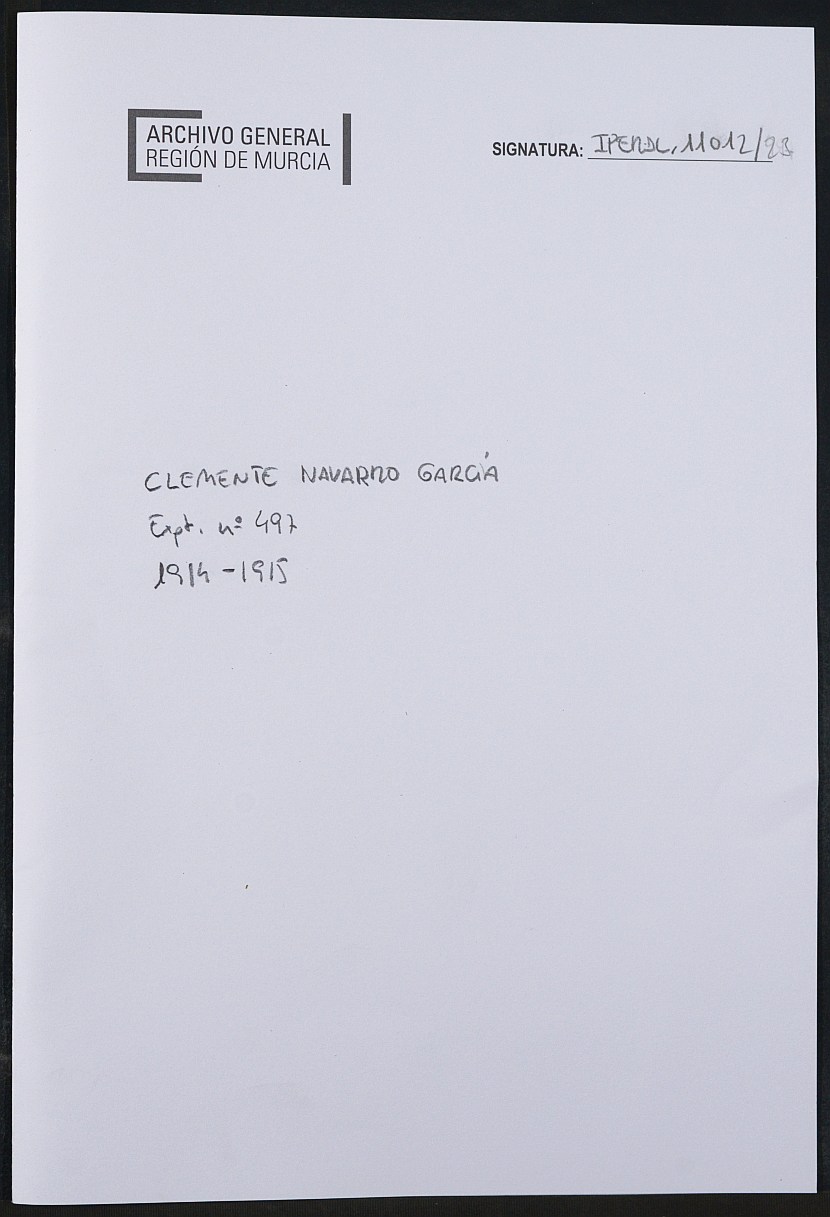 ARCHIVO GENERAL
REGIÓN DE MURCIA
SIGNATURA: IPERDL, 11012/23
CLEMENTE NAVARRO GARCÍA
Expt. nº 497
1914-1915